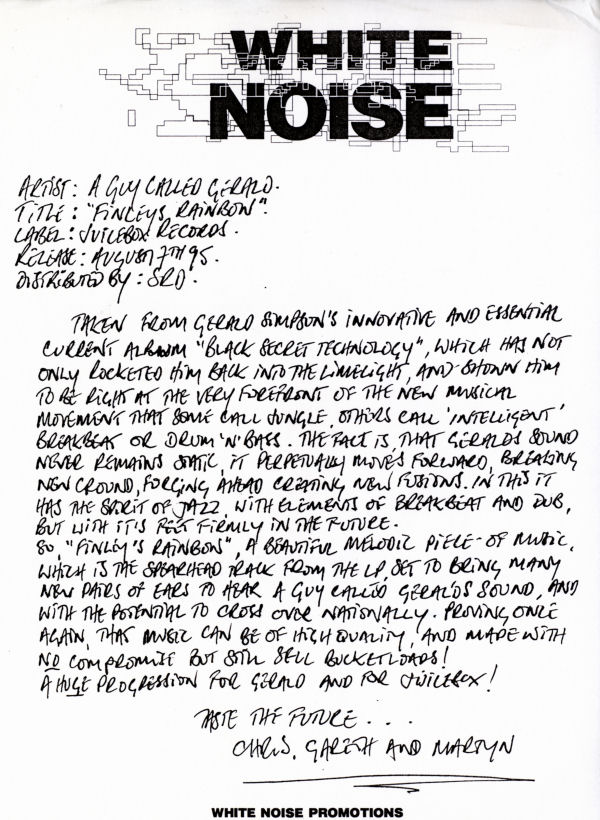 WHITE
NOISE
ARTIST: A GUY CALLED GERALD.
TITLE: "FINLEYS RAINBOW".
LABEL: JUICEBOX RECORDS.
RELEASE: AUGUST 7TH 95.
DISTRIBUTED BY: SRD.
TAKEN FROM GERALD SIMPSON'S INNOVATIVE AND ESSENTIAL
CURRENT ALBUM "BLACK SECRET TECHNOLOGY", WHICH HAS NOT
ONLY ROCKETED HIM BACK INTO THE LIMELIGHT, AND SHOWN HIM
TO BE RIGHT AT THE VERY FOREFRONT OF THE NEW MUSICAL
MOVEMENT THAT SOME CALL JUNGLE, OTHERS CALL 'INTELLIGENT'
BREAKBEAT OR DRUM 'N' BASS. THE FACT IS, THAT GERALDS SOUND
NEVER REMAINS STATIC, IT PERPETUALLY MOVES FORWARD, BREAKING
NEW GROUND, FORGING AHEAD CREATING NEW FUSIONS. IN THIS IT
HAS THE SPIRIT OF JAZZ, WITH ELEMENTS OF BREAKBEAT AND DUB,
BUT WITH IT'S FEET FIRMLY IN THE FUTURE.
SO, "FINLEY'S RAINBOW", A BEAUTIFUL MELODIC PIECE-OF MUSIC,
WHICH IS THE SPEARHEAD TRACK FROM THE LP, SET TO BRING MANY
NEW PAIRS OF EARS TO HEAR A GUY CALLED GERALDS SOUND, AND
WITH THE POTENTIAL TO CROSS OVER NATIONALLY. PROVING ONCE
AGAIN, THAT MUSIC CAN BE OF HIGH QUALITY, AND MADE WITH
NO COMPROMISE BUT STILL SELL BUCKETLOADS!
A HUGE PROGRESSION FOR GERALD AND FOR JUICEBOX!
TASTE THE FUTURE . . .
CHRIS, GARETH AND MARTYN
WHITE NOISE PROMOTIONS